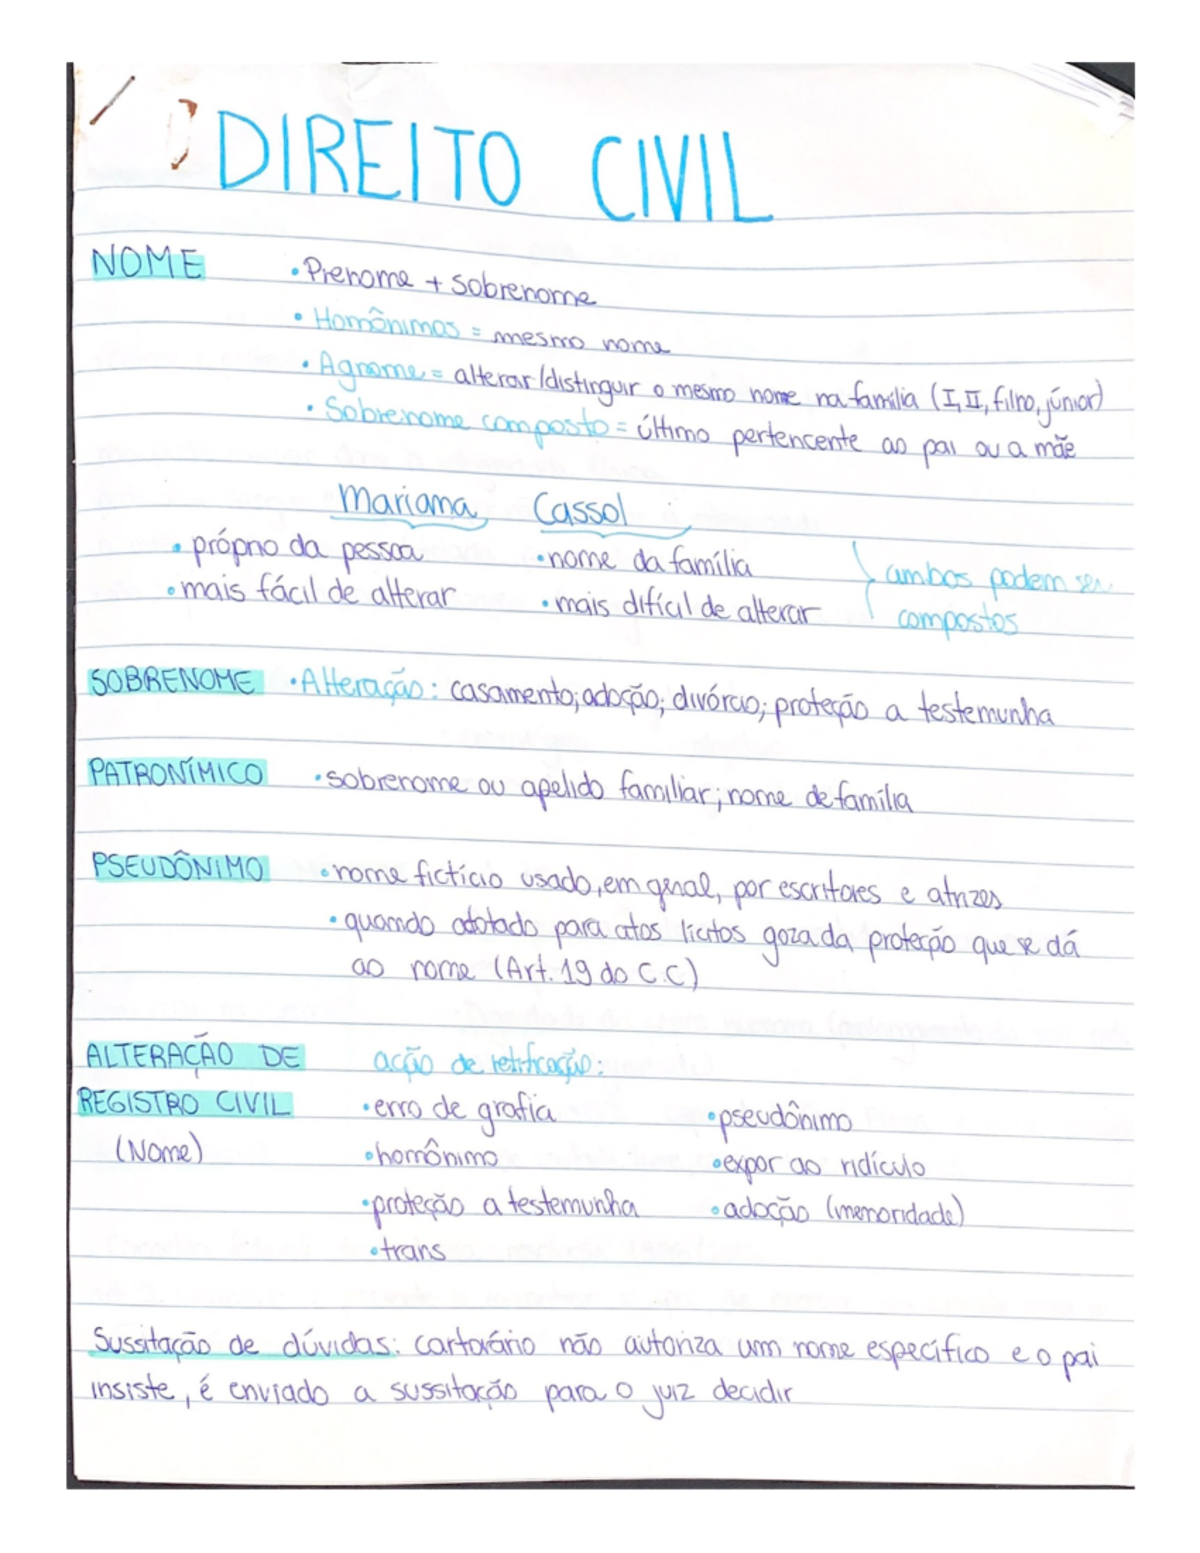 DIREITO CIVIL
NOME • Prenome + sobrenome
• Homônimos = mesmo nome
• Agnome = alterar/distinguir o mesmo nome na família (I, II, filho, júnior)
• Sobrenome composto = último pertencente ao pai ou a mãe
Mariana Cassol
• próprio da pessoa • nome da família
• mais fácil de alterar • mais difícil de alterar
ambos podem ser
compostos
SOBRENOME • Alteração: casamento; adoção; divórcio; proteção a testemunha
PATRONÍMICO • sobrenome ou apelido familiar; nome de família
PSEUDÔNIMO • nome fictício usado, em geral, por escritores e atrizes
• quando adotado para atos lícitos goza da proteção que se dá
ao nome (Art. 19 do C.C)
ALTERAÇÃO DE ação de retificação:
REGISTRO CIVIL • erro de grafia • pseudônimo
(Nome) • homônimo • expor ao ridículo
• proteção a testemunha • adoção (menoridade)
• trans
Sussitação de dúvidas: cartorário não autoriza um nome específico e o pai
insiste, é enviado a sussitação para o juiz decidir